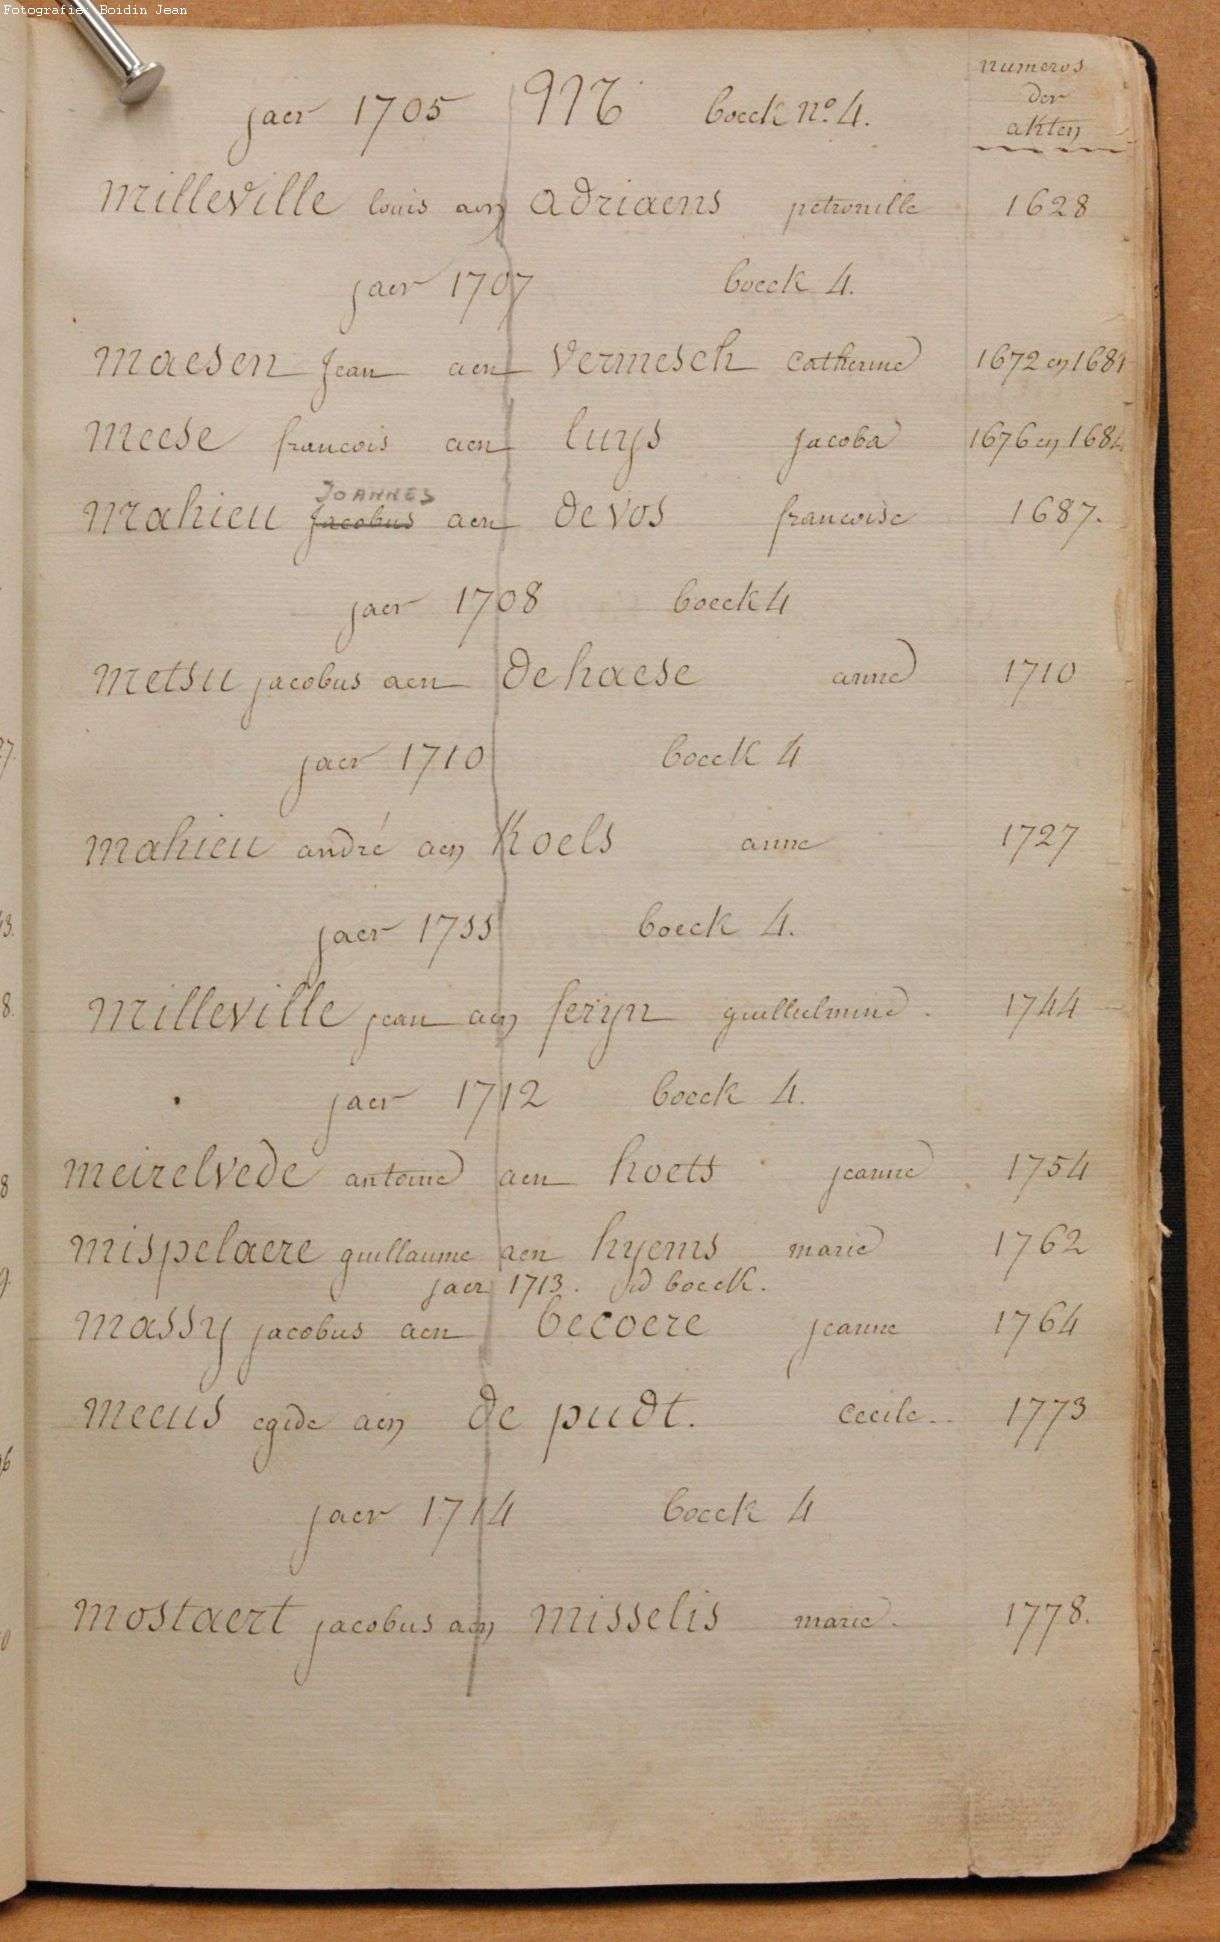 Fotografie: Boidin Jean
numeros
der
akten
jaer 1705 M boeck no. 4.
Milleville louis aen adriaens petronille 1628
jaer 1707 boeck 4.
Maesen Jean aen Vermesch Catherine 1672 en 1684
Meese francois aen luys Jacoba 1676 en 1684
JOANNES
Mahieu Jacobus aen de vos francoise 1687.
jaer 1708 boeck 4
Metsu jacobus aen de haese anne 1710
jaer 1710 boeck 4
Mahieu andré aen Koels anne 1727
jaer 1711 boeck 4.
Milleville jean aen feryn guillielmine. 1744
jaer 1712 boeck 4.
Meirelvede antoine aen hoets jeanne 1754
Mispelaere guillaume aen hyems marie 1762
jaer 1713. id boeck.
Massy jacobus aen becoere jeanne 1764
Meeus egide aen de pudt. cecile. 1773
jaer 1714 boeck 4
Mostaert jacobus aen misselis marie. 1778.